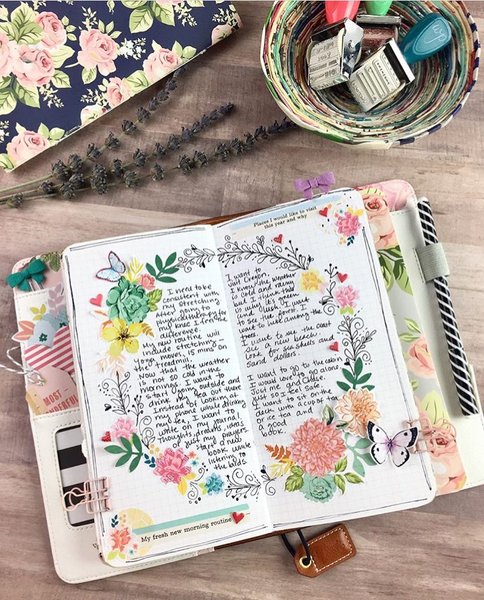 I need to be
consistent with
my stretching
After going to
physical therapy for
my knee I find the
difference.
My new routine will
include stretching -
yoga moves, 15 mins. on
the treadmill.
Now that the weather
is not so cold in the
morning. I want to
start going outside and
drink my tea out there
Instead of looking at
my phone while drinking
my tea, I want to
write on my journal
thoughts, dreams, ideas
or just my prayers.
Start a new
book while
listening to
the birds
My fresh new morning routine
Places I would like to visit
this year and why
I want to
visit Oregon.
I know the weather
is cold and rainy
but I think that
is why it's green
and lush. I want
to see the forest. I
want to just among the
trees.
I want to see the coast
and new beach.
Look for sea shells and
sand dollars.
I want to go to the cabin
I would love to go alone
Just me and Chloe.
I just so I feel safe.
I want to sit on the
deck with a cup of tea
or ice tea and
a good
book.
MOST
WONDERFUL